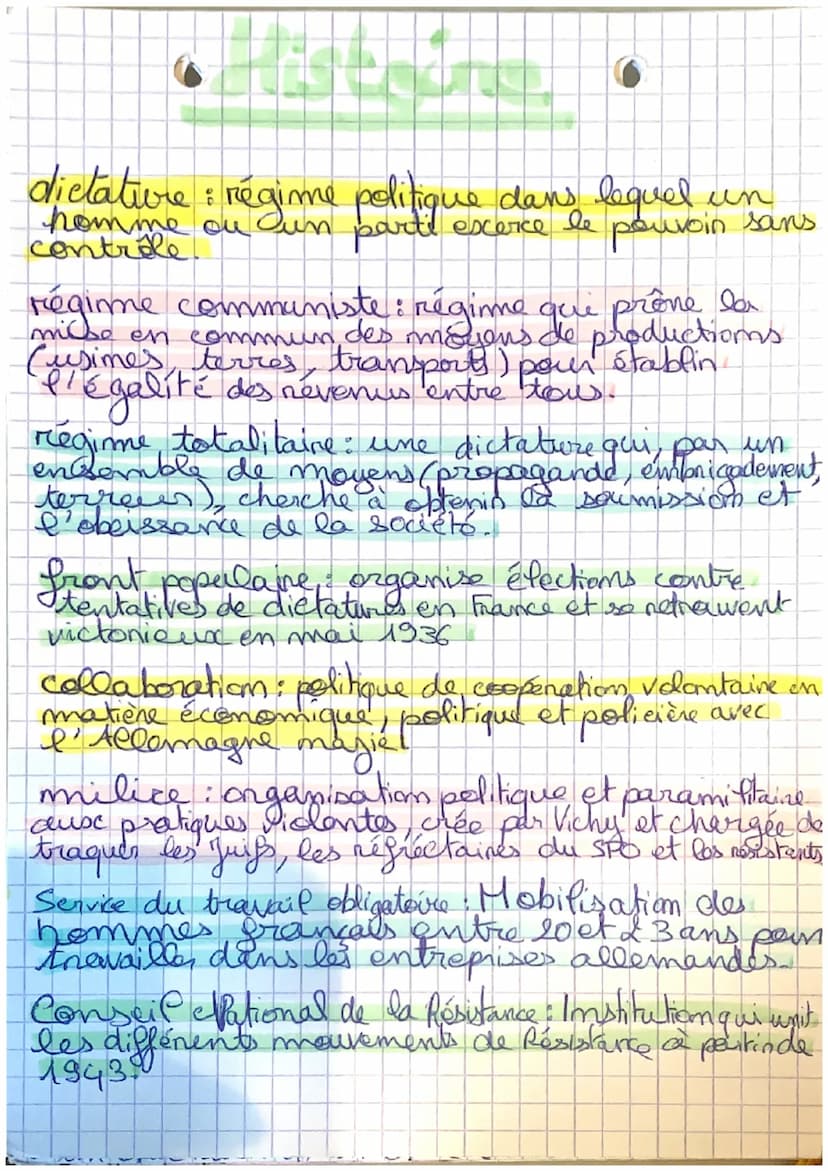 Histoire
dictature : régime politique dans lequel un
homme ou un parti exerce le pouvoir sans
contrôle.
régime communiste : régime qui prône la
mise en commun des moyens de productions
(usines, terres, transports) pour établir
l'égalité des revenus entre tous.
régime totalitaire : une dictature qui, par un
ensemble de moyens (propagande, embrigadement,
terreur), cherche à obtenir la soumission et
l'obeissance de la société.
front populaire : organise élections contre
tentatives de dictatures en France et se retrouvent
victorieux en mai 1936
collaboration : politique de coopération volontaire en
matière économique, politique et policière avec
l'Allemagne
milice : organisation politique et paramilitaire
aux pratiques violentes, crée par Vichy et chargée de
traquer les Juifs, les réfractaires du STO et les résistants
Service du travail obligatoire : Mobilisation des
hommes français entre 20 et 23 ans pour
travailler dans les entreprises allemandes.
Conseil National de la Résistance : Institution qui unit
les différents mouvements de Résistance à partir de
1943.